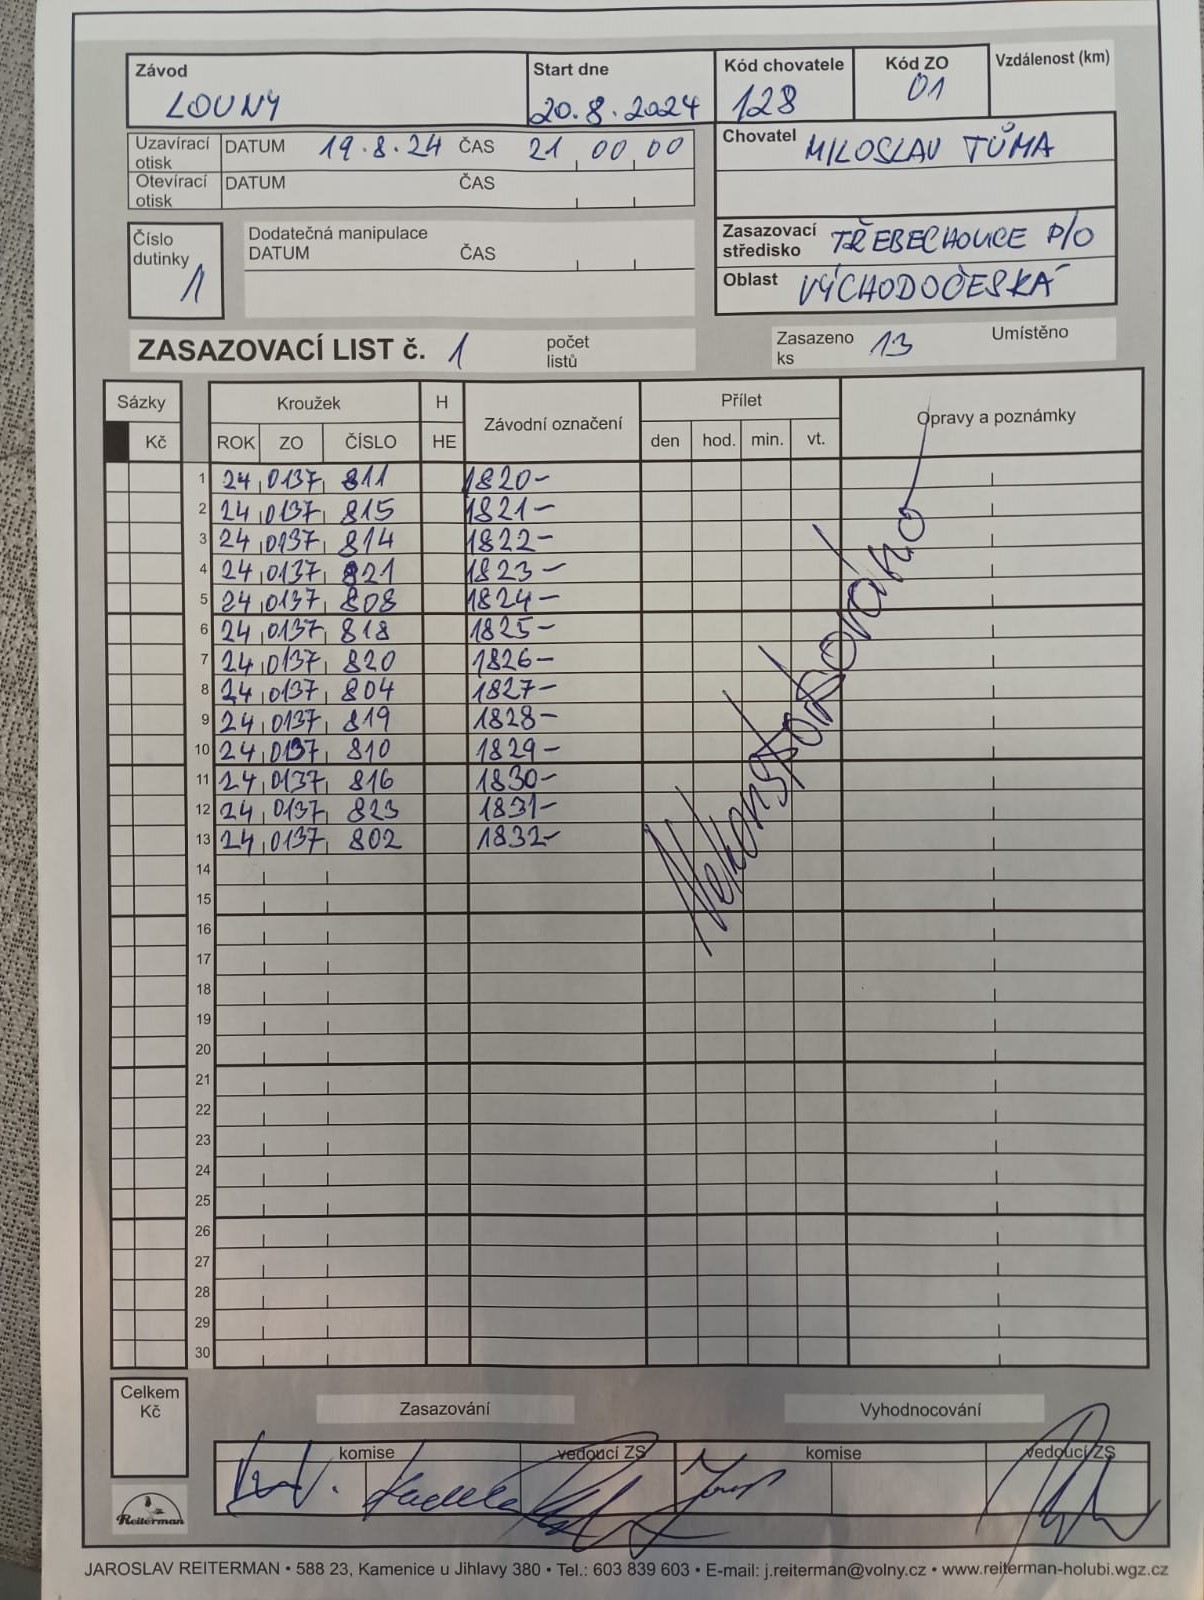 Závod Start dne Kód chovatele Kód ZO Vzdálenost (km)
LOUNY 20.8.2024 128 01
Uzavírací otisk DATUM 19.8.24 ČAS 21 00 00
Otevírací otisk DATUM ČAS
Chovatel MILOSLAV TŮMA
Číslo dutinky 1
Dodatečná manipulace
DATUM ČAS
Zasazovací středisko TŘEBECHOVICE P/O
Oblast VÝCHODOČESKÁ
ZASAZOVACÍ LIST č. 1 počet listů Zasazeno ks 13 Umístěno
Sázky Kroužek H Závodní označení Přílet Opravy a poznámky
Kč ROK ZO ČÍSLO HE den hod. min. vt.
1 24 0137 811 1820-
2 24 0137 815 1821-
3 24 0137 814 1822-
4 24 0137 821 1823-
5 24 0137 808 1824-
6 24 0137 818 1825-
7 24 0137 820 1826-
8 24 0137 804 1827-
9 24 0137 819 1828-
10 24 0137 810 1829-
11 24 0137 816 1830-
12 24 0137 823 1831-
13 24 0137 802 1832-
Nekonstatováno
14
15
16
17
18
19
20
21
22
23
24
25
26
27
28
29
30
Celkem Kč
Zasazování Vyhodnocování
komise vedoucí ZS komise vedoucí ZS
Reiterman
JAROSLAV REITERMAN • 588 23, Kamenice u Jihlavy 380 • Tel.: 603 839 603 • E-mail: j.reiterman@volny.cz • www.reiterman-holubi.wgz.cz